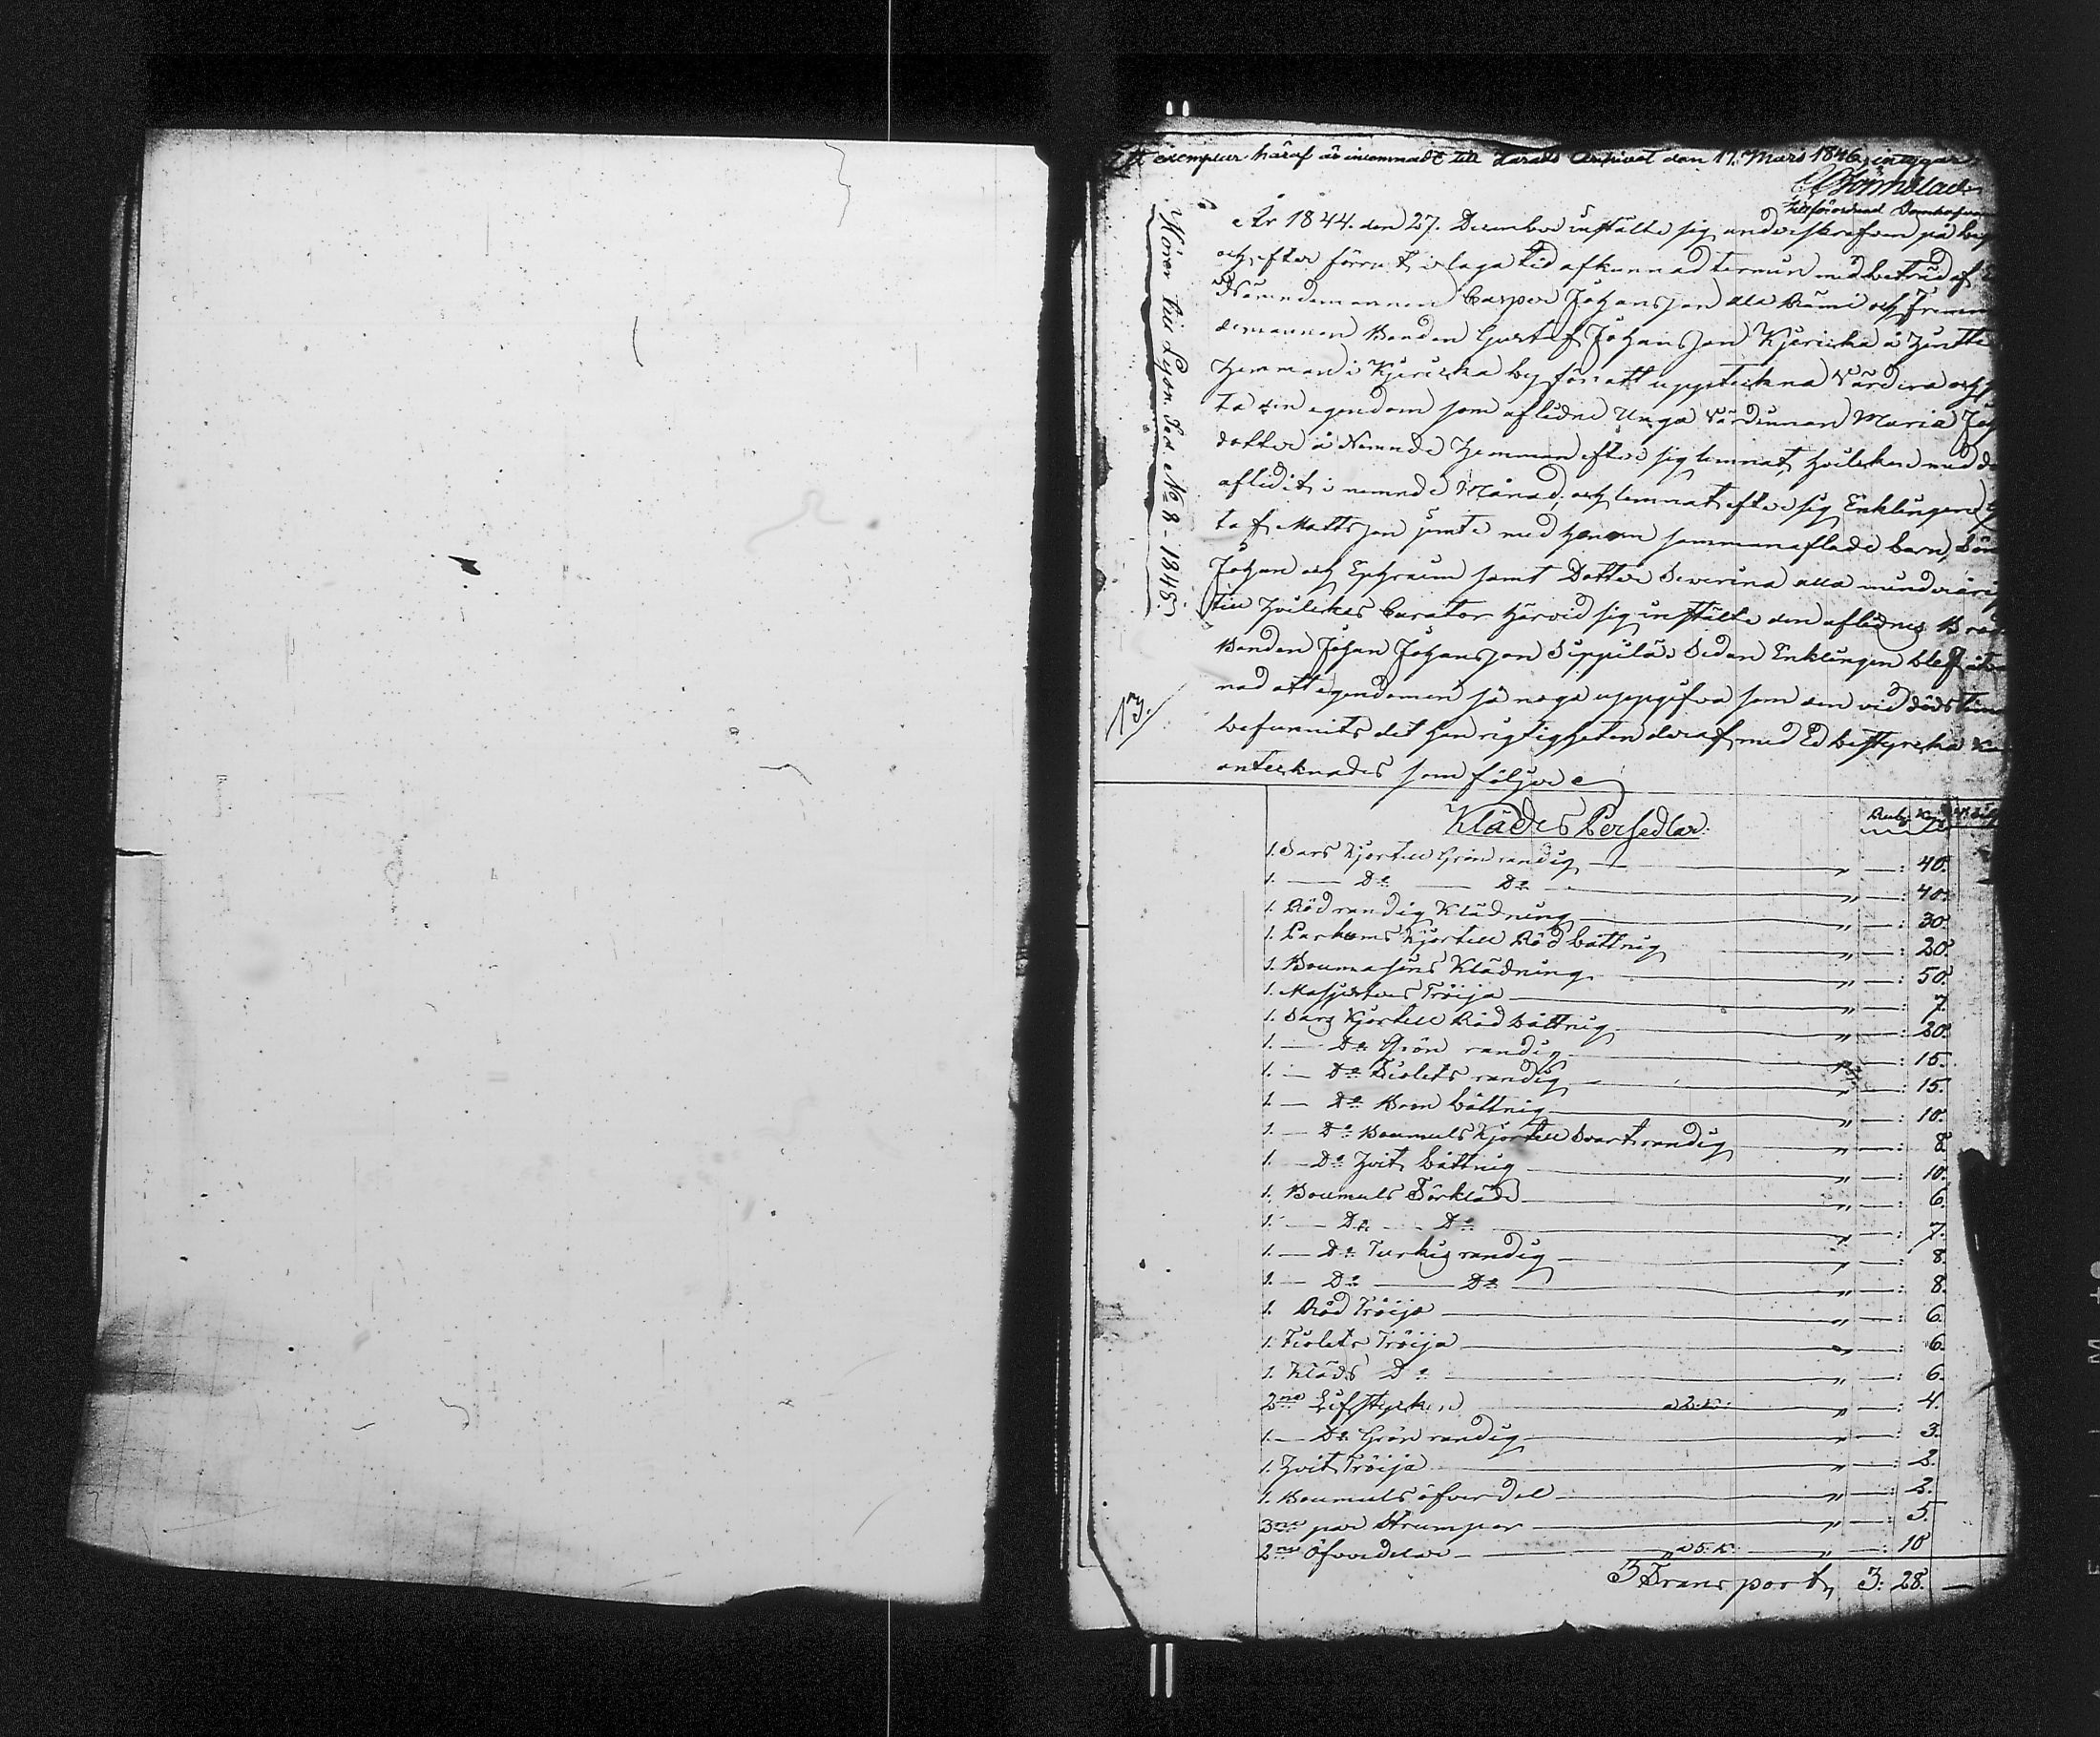 exemplar häraf är inlemnadt till Harads Archivet den 17. Mars 1846, intygar
Tillförordnad Domhafvande
År 1844. den 27. December instälte sig underskrefven på beg
och efter förrut i laga tid afkunnad termin med biträd af
Nämndemannen Casper Johansson Ala Rämi och Fremm
demannen Bonden Gustaf Johansson Kjericka å
Hemman i Kjericka by för att uppteckna Värdera och
ta den egendom som aflidne Unga Värdinnan Maria Joh
dotter å Nemnde Hemman efter sig lemnat, hvilken med dö
aflidit i nemnde Månad, och lemnat efter sig Enklingen G
taf Mattsson jemte med henne sammanaflade barn, Sön
Johan och Ephraim samt Dotter Severina alla minderårig
till hvilkas Curator härvid sig instälte den aflidnes Brod
Bonden Johan Johansson Seppilä; Sedan Enklingen blef
nad att egendomen så noga uppgifva som den vid dödstim
befunnits det han rigtigheten deraf med Ed bestyrcka
antecknades som följer
Hörer till Lysn. Prd. No 8 - 1848.
13.
Klädes Persedlar.
Rub. K.
1. Sars Kjortell Grön randig " — : 40.
1. — Do — Do — " — : 40.
1. Röd randig Klädning " — : 30.
1. Parkoms Kjortell Röd båttnig " — : 20.
1. Boumasins Klädning " — : 50.
1. Tröija " — : 7.
1. Sars Kjortell Röd båttnig " — : 20.
1. — Do Grön randig " — : 15.
1. — Do Fiolets randig " — : 15.
1. — Do Brun båttnig " — : 10.
1. — Do Boumuls Kjortell Svart randig " — : 8.
1. — Do Hvit båttnig " — : 10.
1. Boumuls Förkläde " — : 6.
1. — Do — Do " — : 7.
1. — Do Turkig randig " — : 8.
1. — Do — Do " — : 8.
1. Röd Tröija " — : 6.
1. Fiolets Tröija " — : 6.
1. Kläds Do " — : 6.
2ne Lifstycken a 2. K. " — : 4.
1. — Do Grön randig " — : 3.
1. Hvit Tröija " — : 2.
1. Boumuls öfverdel " — : 2.
3ne par Strumpor " — : 5.
2ne Öfverdelar a 5. K. " — : 10
Transport, 3: 28. —